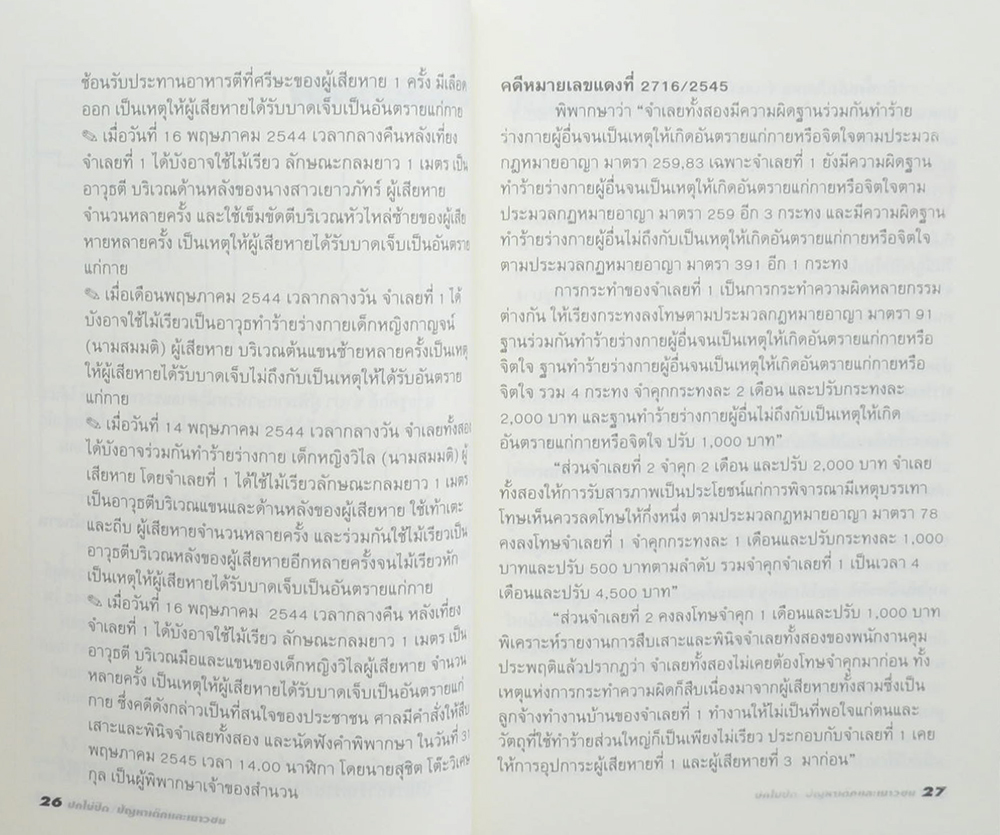 ช้อนรับประทานอาหารตีที่ศรีษะของผู้เสียหาย 1 ครั้ง มีเลือด
ออก เป็นเหตุให้ผู้เสียหายได้รับบาดเจ็บเป็นอันตรายแก่กาย
✎ เมื่อวันที่ 16 พฤษภาคม 2544 เวลากลางคืนหลังเที่ยง
จำเลยที่ 1 ได้บังอาจใช้ไม้เรียว ลักษณะกลมยาว 1 เมตร เป็น
อาวุธตี บริเวณด้านหลังของนางสาวเยาวภัทร์ ผู้เสียหาย
จำนวนหลายครั้ง และใช้เข็มขัดตีบริเวณหัวไหล่ซ้ายของผู้เสีย
หายหลายครั้ง เป็นเหตุให้ผู้เสียหายได้รับบาดเจ็บเป็นอันตราย
แก่กาย
✎ เมื่อเดือนพฤษภาคม 2544 เวลากลางวัน จำเลยที่ 1 ได้
บังอาจใช้ไม้เรียวเป็นอาวุธทำร้ายร่างกายเด็กหญิงกาญจน์
(นามสมมติ) ผู้เสียหาย บริเวณต้นแขนซ้ายหลายครั้งเป็นเหตุ
ให้ผู้เสียหายได้รับบาดเจ็บไม่ถึงกับเป็นเหตุให้ได้รับอันตราย
แก่กาย
✎ เมื่อวันที่ 14 พฤษภาคม 2544 เวลากลางวัน จำเลยทั้งสอง
ได้บังอาจร่วมกันทำร้ายร่างกาย เด็กหญิงวิไล (นามสมมติ) ผู้
เสียหาย โดยจำเลยที่ 1 ได้ใช้ไม้เรียวลักษณะกลมยาว 1 เมตร
เป็นอาวุธตีบริเวณแขนและด้านหลังของผู้เสียหาย ใช้เท้าเตะ
และถีบ ผู้เสียหายจำนวนหลายครั้ง และร่วมกันใช้ไม้เรียวเป็น
อาวุธตีบริเวณหลังของผู้เสียหายอีกหลายครั้งจนไม้เรียวหัก
เป็นเหตุให้ผู้เสียหายได้รับบาดเจ็บเป็นอันตรายแก่กาย
✎ เมื่อวันที่ 16 พฤษภาคม 2544 เวลากลางคืน หลังเที่ยง
จำเลยที่ 1 ได้บังอาจใช้ไม้เรียว ลักษณะกลมยาว 1 เมตร เป็น
อาวุธตี บริเวณมือและแขนของเด็กหญิงวิไลผู้เสียหาย จำนวน
หลายครั้ง เป็นเหตุให้ผู้เสียหายได้รับบาดเจ็บเป็นอันตรายแก่
กาย ซึ่งคดีดังกล่าวเป็นที่สนใจของประชาชน ศาลมีคำสั่งให้สืบ
เสาะและพินิจจำเลยทั้งสอง และนัดฟังคำพิพากษา ในวันที่ 31
พฤษภาคม 2545 เวลา 14.00 นาฬิกา โดยนายสุชิต โต๊ะวิเศษ
กุล เป็นผู้พิพากษาเจ้าของสำนวน
26 ปกไม่ปิด / ปัญหาเด็กและเยาวชน
คดีหมายเลขแดงที่ 2716/2545
พิพากษาว่า “จำเลยทั้งสองมีความผิดฐานร่วมกันทำร้าย
ร่างกายผู้อื่นจนเป็นเหตุให้เกิดอันตรายแก่กายหรือจิตใจตามประมวล
กฎหมายอาญา มาตรา 259,83 เฉพาะจำเลยที่ 1 ยังมีความผิดฐาน
ทำร้ายร่างกายผู้อื่นจนเป็นเหตุให้เกิดอันตรายแก่กายหรือจิตใจตาม
ประมวลกฎหมายอาญา มาตรา 259 อีก 3 กระทง และมีความผิดฐาน
ทำร้ายร่างกายผู้อื่นไม่ถึงกับเป็นเหตุให้เกิดอันตรายแก่กายหรือจิตใจ
ตามประมวลกฎหมายอาญา มาตรา 391 อีก 1 กระทง
การกระทำของจำเลยที่ 1 เป็นการกระทำความผิดหลายกรรม
ต่างกัน ให้เรียงกระทงลงโทษตามประมวลกฎหมายอาญา มาตรา 91
ฐานร่วมกันทำร้ายร่างกายผู้อื่นจนเป็นเหตุให้เกิดอันตรายแก่กายหรือ
จิตใจ ฐานทำร้ายร่างกายผู้อื่นจนเป็นเหตุให้เกิดอันตรายแก่กายหรือ
จิตใจ รวม 4 กระทง จำคุกกระทงละ 2 เดือน และปรับกระทงละ
2,000 บาท และฐานทำร้ายร่างกายผู้อื่นไม่ถึงกับเป็นเหตุให้เกิด
อันตรายแก่กายหรือจิตใจ ปรับ 1,000 บาท”
“ส่วนจำเลยที่ 2 จำคุก 2 เดือน และปรับ 2,000 บาท จำเลย
ทั้งสองให้การรับสารภาพเป็นประโยชน์แก่การพิจารณามีเหตุบรรเทา
โทษเห็นควรลดโทษให้กึ่งหนึ่ง ตามประมวลกฎหมายอาญา มาตรา 78
คงลงโทษจำเลยที่ 1 จำคุกกระทงละ 1 เดือนและปรับกระทงละ 1,000
บาทและปรับ 500 บาทตามลำดับ รวมจำคุกจำเลยที่ 1 เป็นเวลา 4
เดือนและปรับ 4,500 บาท”
“ส่วนจำเลยที่ 2 คงลงโทษจำคุก 1 เดือนและปรับ 1,000 บาท
พิเคราะห์รายงานการสืบเสาะและพินิจจำเลยทั้งสองของพนักงานคุม
ประพฤติแล้วปรากฏว่า จำเลยทั้งสองไม่เคยต้องโทษจำคุกมาก่อน ทั้ง
เหตุแห่งการกระทำความผิดก็สืบเนื่องมาจากผู้เสียหายทั้งสามซึ่งเป็น
ลูกจ้างทำงานบ้านของจำเลยที่ 1 ทำงานให้ไม่เป็นที่พอใจแก่ตนและ
วัตถุที่ใช้ทำร้ายส่วนใหญ่ก็เป็นเพียงไม้เรียว ประกอบกับจำเลยที่ 1 เคย
ให้การอุปการะผู้เสียหายที่ 1 และผู้เสียหายที่ 3 มาก่อน”
ปกไม่ปิด / ปัญหาเด็กและเยาวชน 27